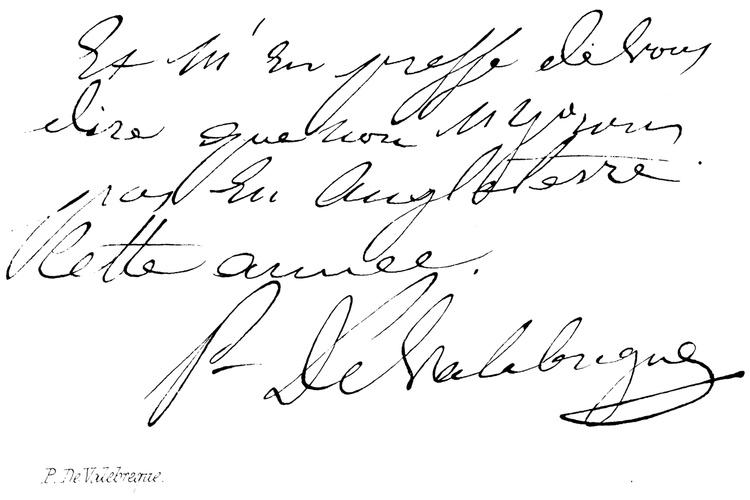 Et m'en presse de vous
dire que nou n'yrons
pas en Angleterre.
Cette année.
P. De Valabregue
P. De Valebreque.